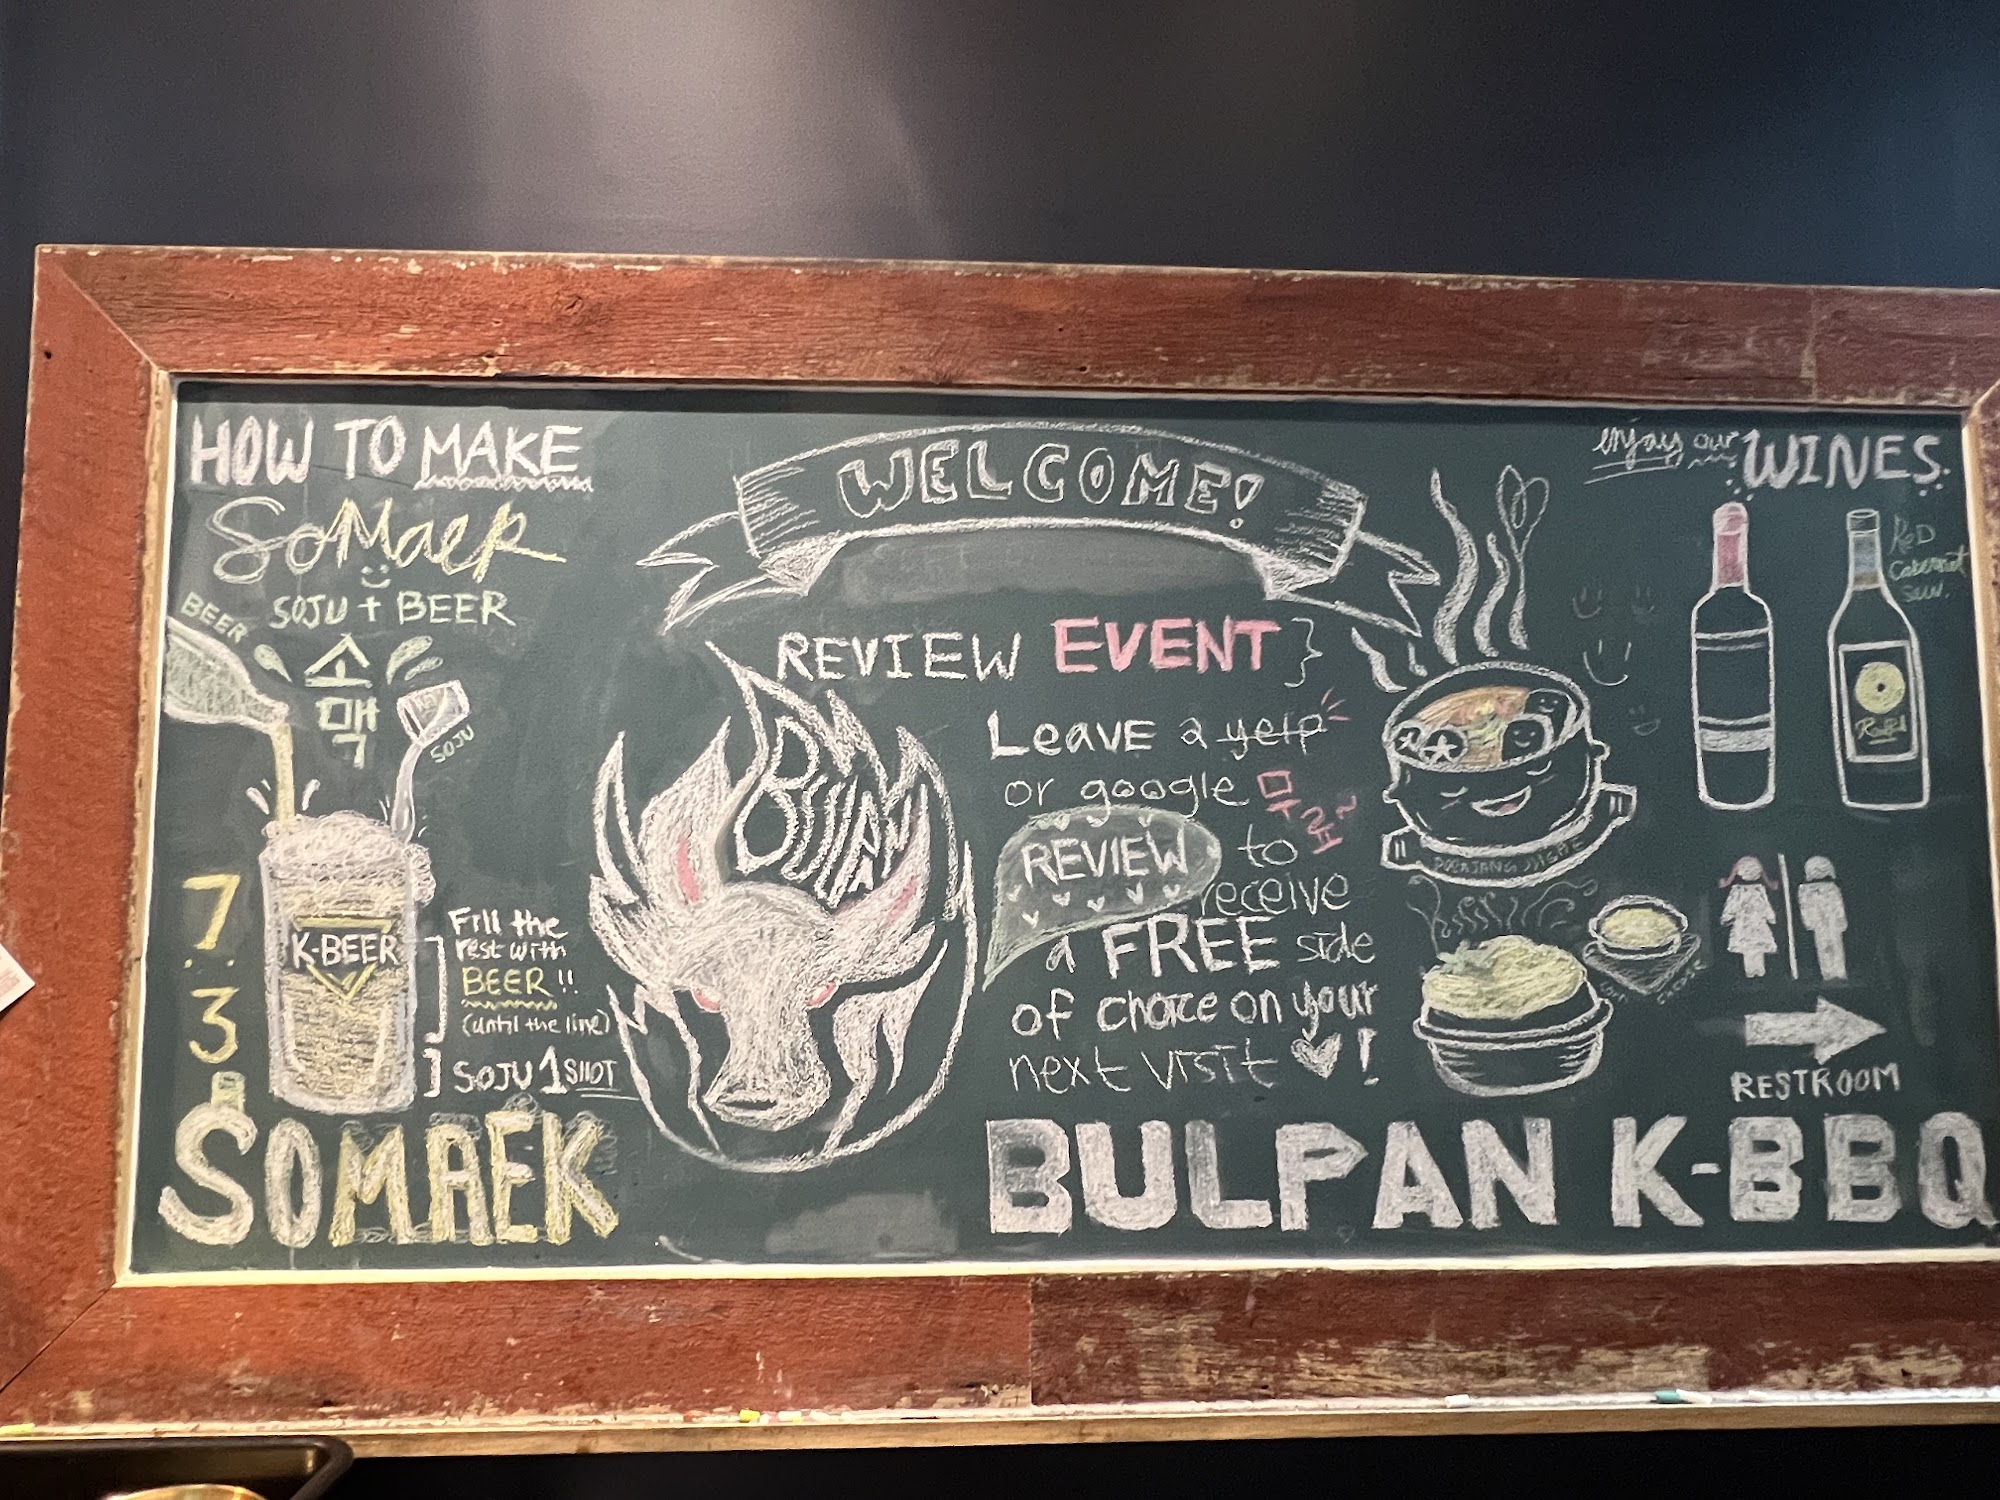 HOW TO MAKE
SoMaek
SOJU + BEER
소
맥
BEER
SOJU
K-BEER
7
:
3
Fill the
rest with
BEER!!
(until the line)
SOJU 1 SHOT
SOMAEK
WELCOME!
REVIEW EVENT}
BULPAN
Leave a yelp
or google 무료~
REVIEW to
receive
a FREE side
of choice on your
next visit ♥!
BULPAN K-BBQ
DOENJANG JJIGAE
CORN CHEESE
enjoy our WINES
ReD
Cabernet
Sauv.
RESTROOM